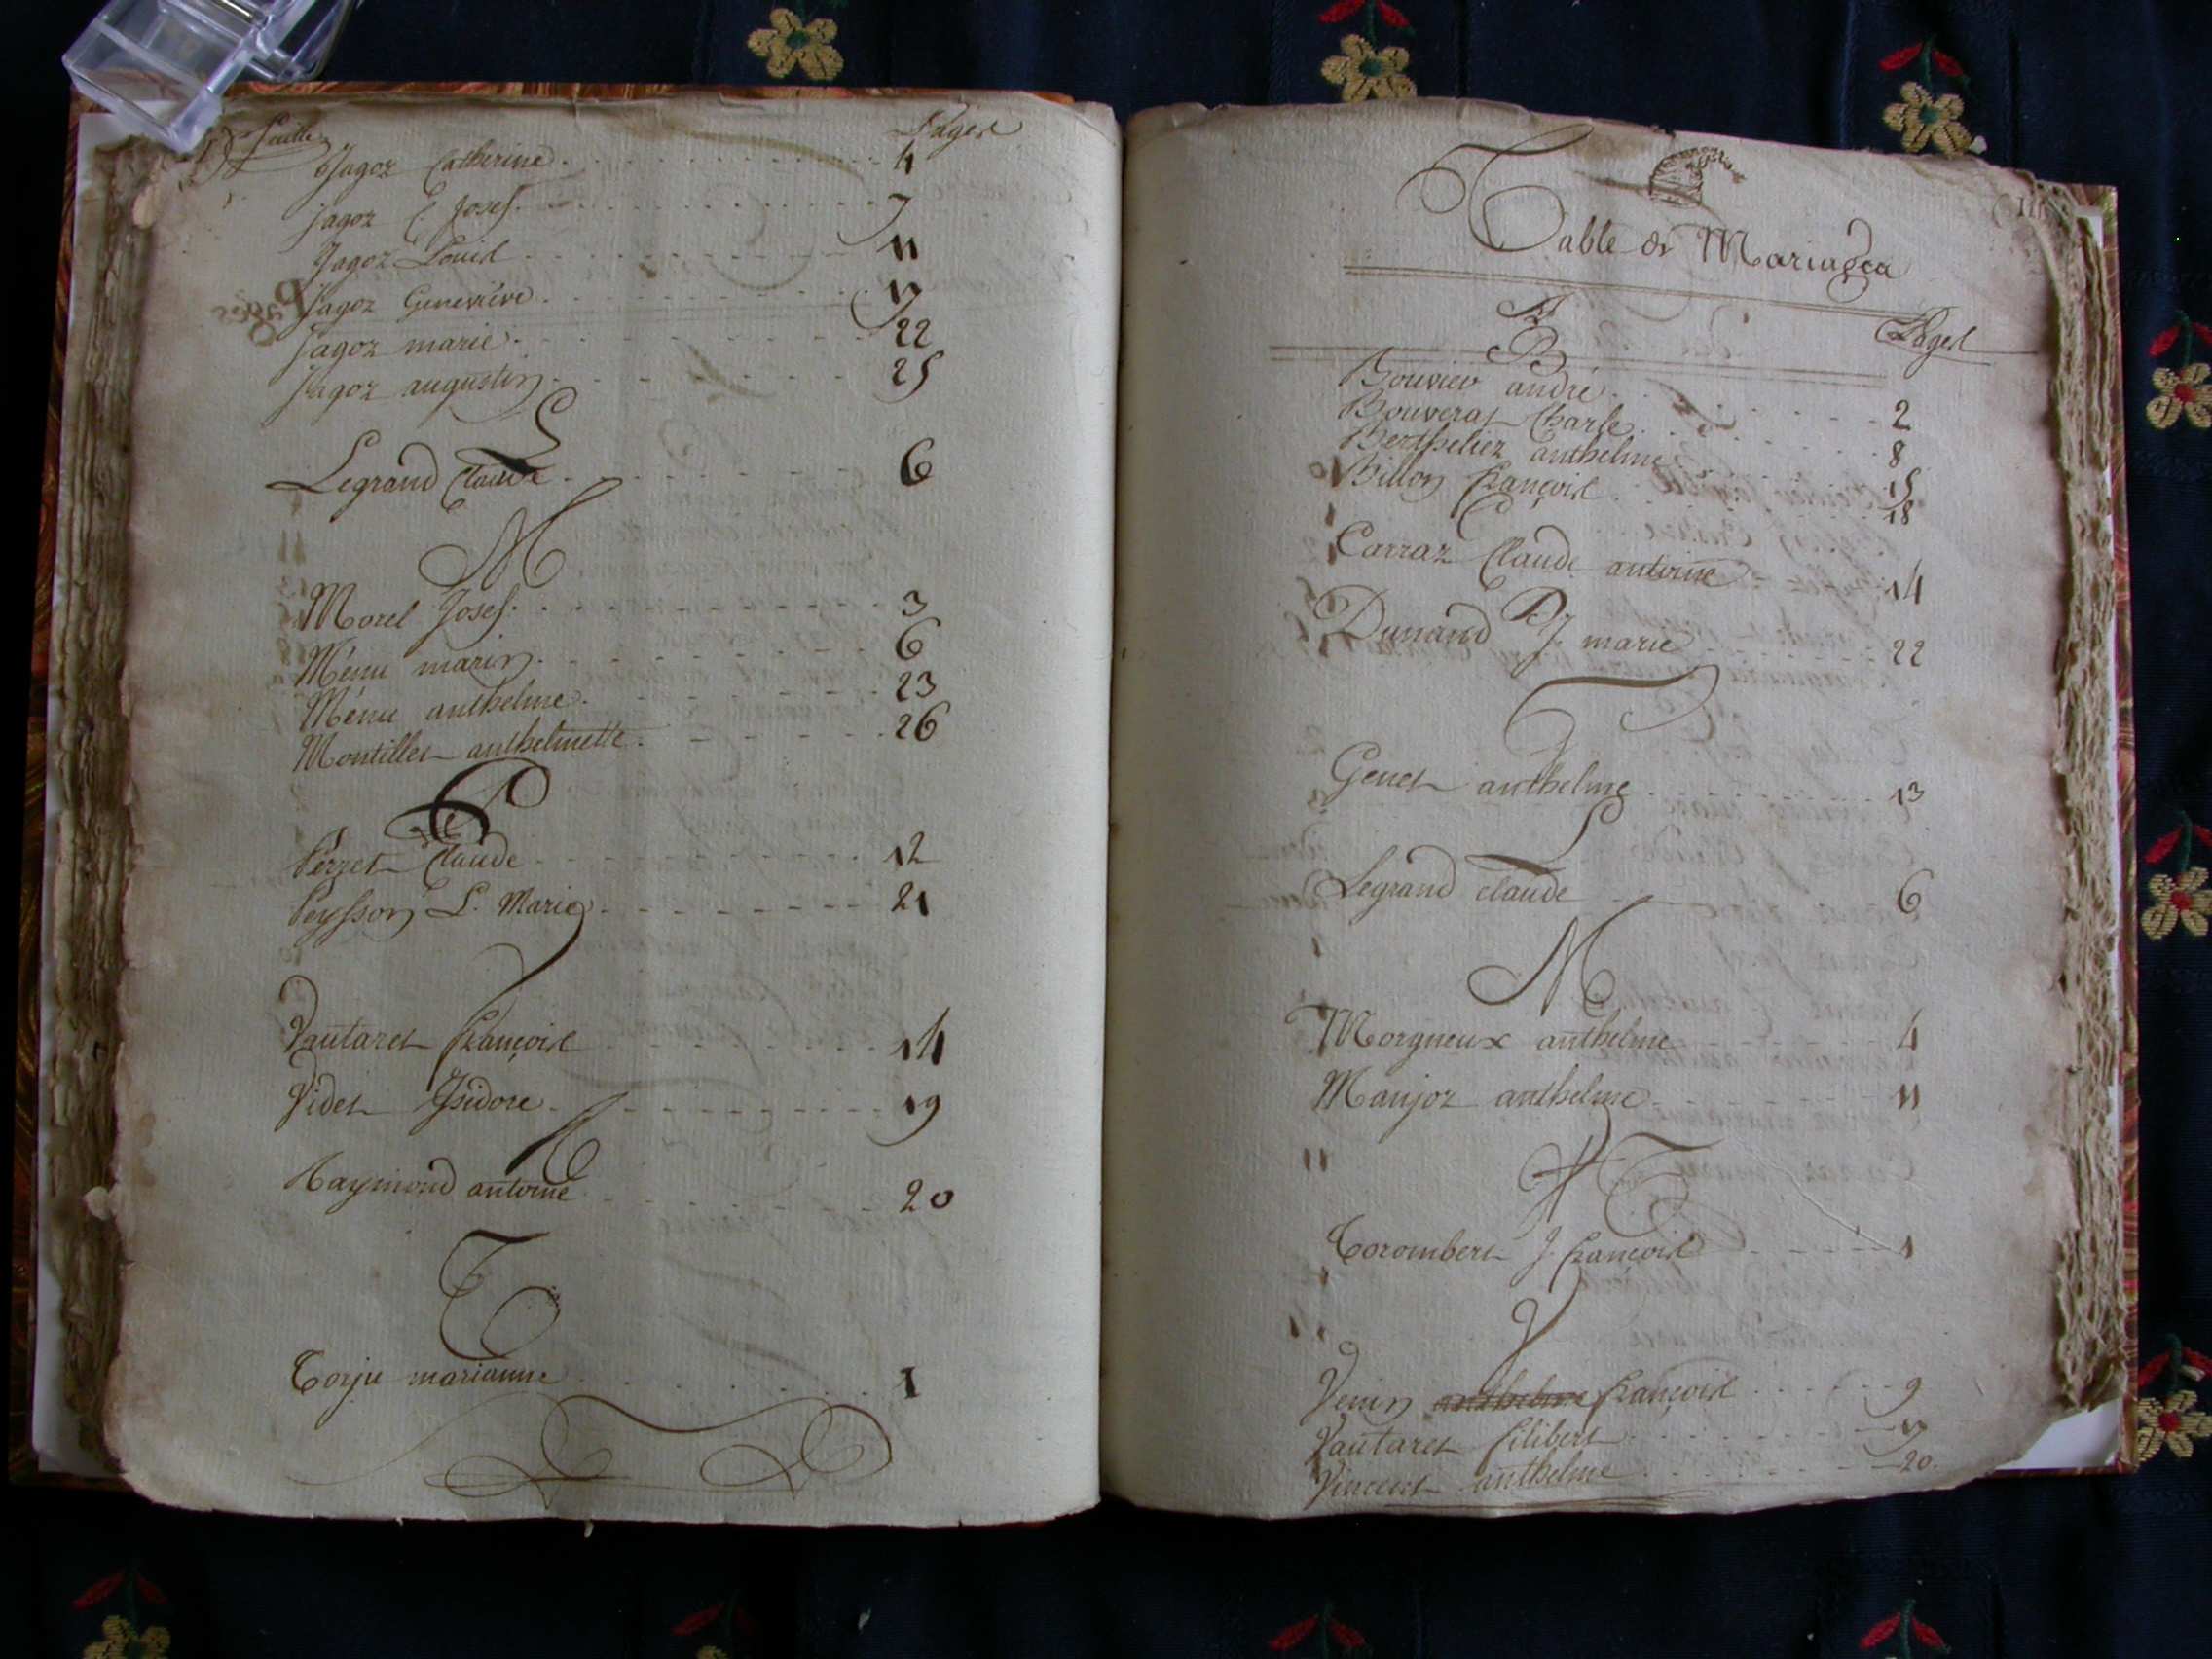 feuille
Pages
Jagoz Catherine 4
jagoz C. Josef 7
Jagoz Louis 11
Jagoz Geneviéve 17
Jagoz marie 22
Jagoz augustin 25
L
Legrand Claude 6
M
Morel Josef 3
Ménu marin 6
Ménu anthelme 23
Montillet anthelmette 26
P
Perret Claude 12
Peysson L. Marie 21
V
Vautaret François 14
Videt Isidore 19
R
Raymond antoine 20
T
Torju marianne 1
Table de Mariages
Pages
B
Bouvier andré 2
Bouverat Charle 8
Berthelier anthelme 15
Billon François 18
C
Carraz Claude antoine 14
D
Dunand J. marie 22
Genet anthelme 13
L
Legrand claude 6
M
Morgneux anthelme 4
Maujoz anthelme 11
T
Corombert J. François 1
V
Venin anthelme François 9
Vautaret filibert 17
Vincent anthelme 20